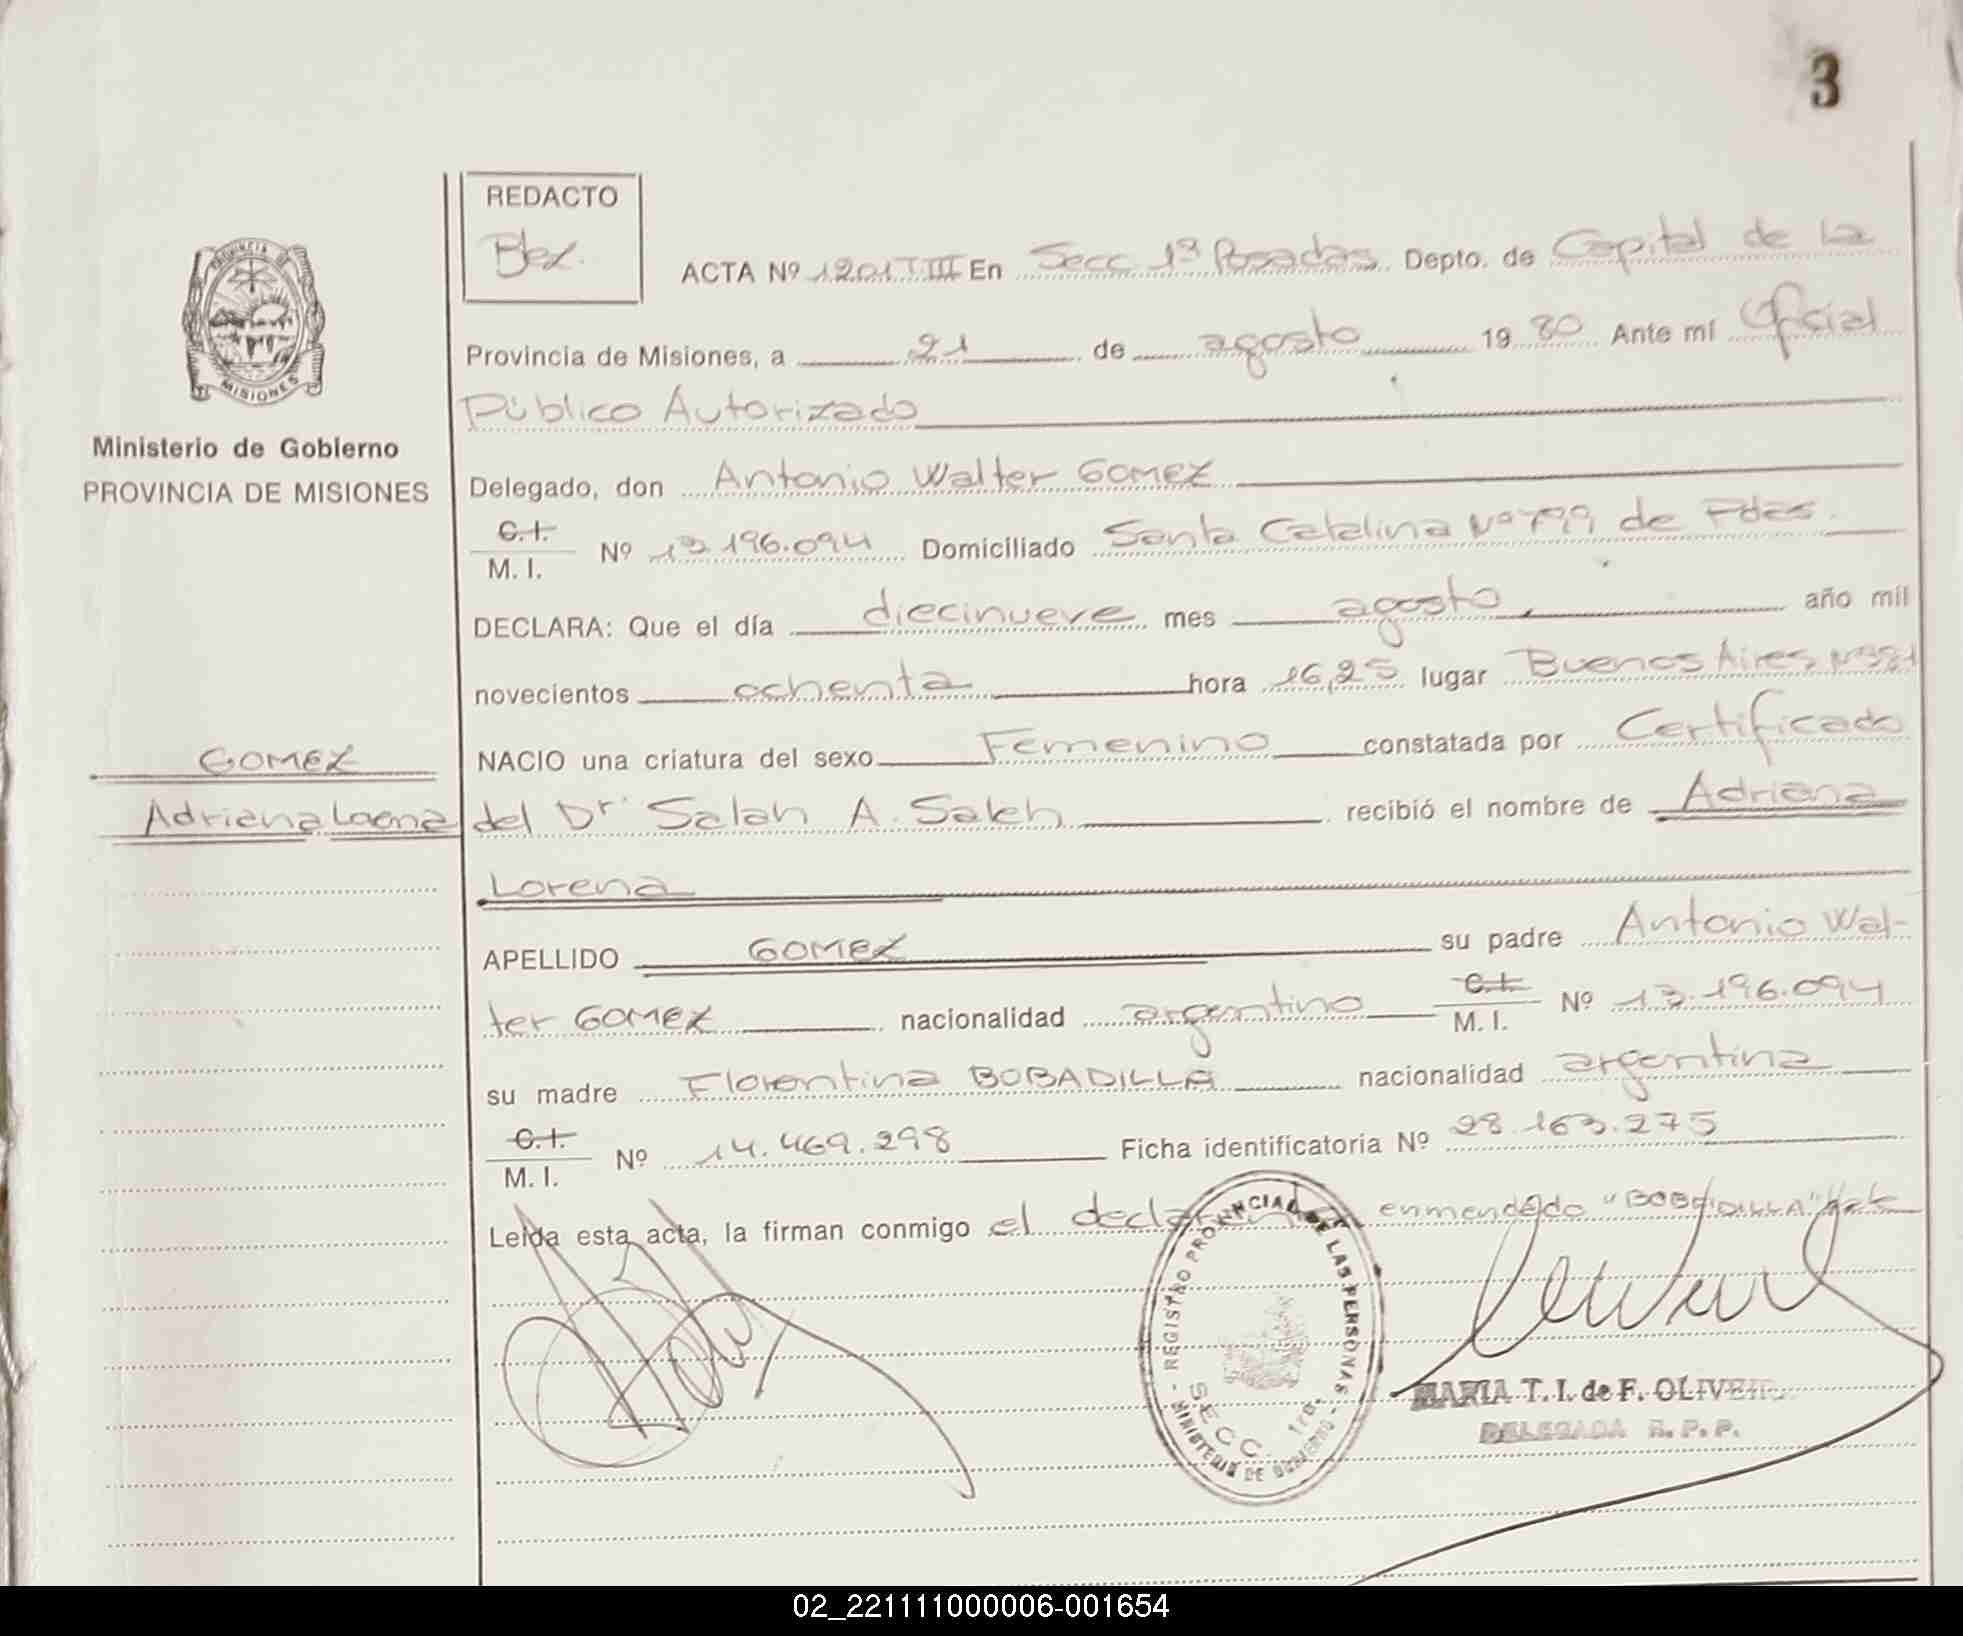 3
REDACTO
Bez.
PROVINCIA DE
MISIONES
Ministerio de Gobierno
PROVINCIA DE MISIONES
ACTA Nº 1201 T III En Secc 1ª Posadas Depto. de Capital de la
Provincia de Misiones, a 21 de agosto 1980 Ante mí Oficial
Público Autorizado
Delegado, don Antonio Walter GOMEZ
C.I.
M. I. Nº 13.196.094 Domiciliado Santa Catalina Nº 799 de Pdas.
DECLARA: Que el día diecinueve mes agosto, año mil
novecientos ochenta hora 16,25 lugar Buenos Aires Nº
GOMEZ
NACIO una criatura del sexo Femenino constatada por Certificado
Adriana Lorena
del Dr Salah A. Saleh recibió el nombre de Adriana
Lorena
APELLIDO GOMEZ su padre Antonio Wal-
ter GOMEZ nacionalidad argentino C.I. M. I. Nº 13.196.094
su madre Florentina BOBADILLA nacionalidad argentina
C.I.
M. I. Nº 14.469.298 Ficha identificatoria Nº 28.163.275
Leída esta acta, la firman conmigo el enmendado "BOBADILLA"
REGISTRO PROVINCIAL DE LAS PERSONAS
SECC. 1ra.
MINISTERIO DE GOBIERNO
MARIA T. I. de F. OLIVEIRA
DELEGADA R. P. P.
02_221111000006-001654